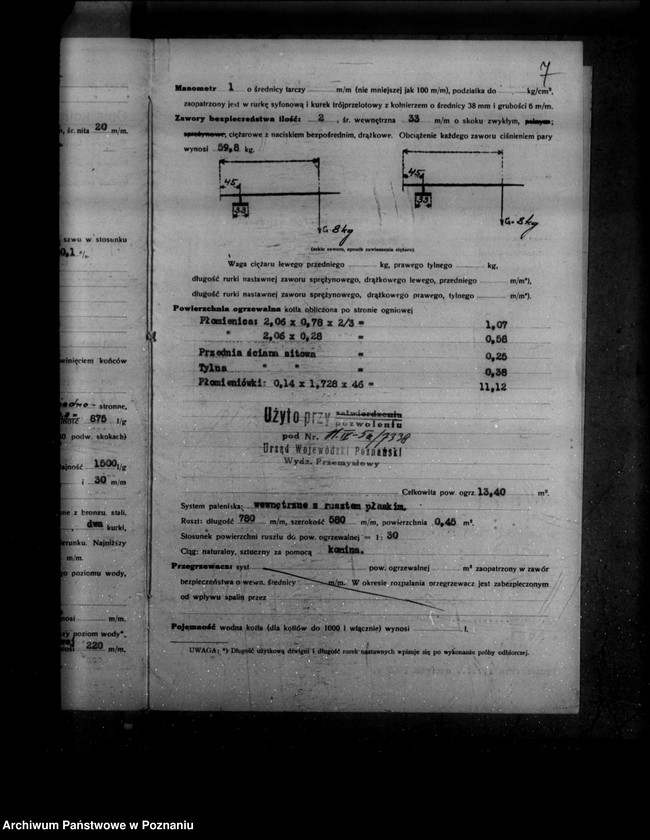 7
Manometr 1 o średnicy tarczy m/m (nie mniejszej jak 100 m/m), podziałka do kg/cm²,
zaopatrzony jest w rurkę syfonową i kurek trójprzelotowy z kołnierzem o średnicy 38 mm i grubości 6 m/m.
Zawory bezpieczeństwa ilość: 2, śr. wewnętrzna 33 m/m o skoku zwykłym,
sprężynowe, ciężarowe z naciskiem bezpośrednim, drążkowe. Obciążenie każdego zaworu ciśnieniem pary
wynosi 59,8 kg.
45
33
G-8kg
45
33
G-8kg
(szkic zaworu, sposób zawieszenia ciężaru)
Waga ciężaru lewego przedniego kg, prawego tylnego kg,
długość rurki nastawnej zaworu sprężynowego, drążkowego lewego, przedniego m/m*),
długość rurki nastawnej zaworu sprężynowego, drążkowego prawego, tylnego m/m*).
Powierzchnia ogrzewalna kotła obliczona po stronie ogniowej
Płomienica: 2,06 x 0,78 x 2/3 = 1,07
" 2,06 x 0,28 = 0,58
Przednia ściana sitowa = 0,25
Tylna " " = 0,38
Płomieniówki: 0,14 x 1,728 x 46 = 11,12
Użyto przy zatwierdzeniu
pozwoleniu
pod Nr.
Urząd Wojewódzki Poznański
Wydz. Przemysłowy
Całkowita pow. ogrz. 13,40 m².
System paleniska: wewnętrzne z rusztem płaskim.
Ruszt: długość 780 m/m, szerokość 580 m/m, powierzchnia 0,45 m².
Stosunek powierzchni rusztu do pow. ogrzewalnej = 1 : 30
Ciąg: naturalny, sztuczny za pomocą komina.
Przegrzewacz: syst pow. ogrzewalnej m² zaopatrzony w zawór
bezpieczeństwa o wewn. średnicy m/m. W okresie rozpalania przegrzewacz jest zabezpieczonym
od wpływu spalin przez
Pojemność wodna kotła (dla kotłów do 1000 l włącznie) wynosi l.
UWAGA: *) Długość użytkową dźwigni i długość rurek nastawnych wpisuje się po wykonaniu próby odbiorczej.
śr. nita 20 m/m.
szwu w stosunku
0,1 %.
winięciem końców
stronne,
875 l/g
podw. skokach)
1500 l/g
i 30 m/m
z bronzu, stali,
dwa kurki,
Najniższy
m/m.
poziomu wody,
m/m.
poziom wody*,
220 m/m.
Archiwum Państwowe w Poznaniu